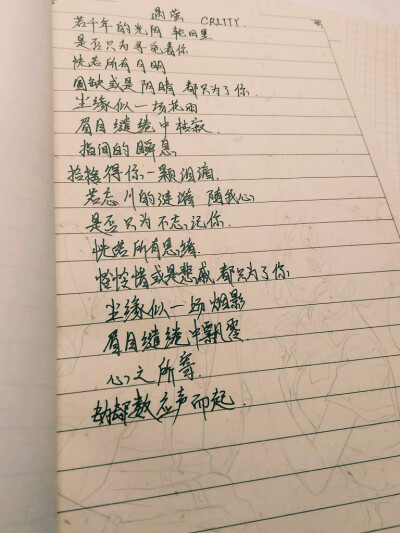 遇萤 CRITTY
若千年的光阴 轮回里
是否只为寻觅着你
恍若所有月明
圆缺或是阴晴 都只为了你
尘缘似一场花雨
眉目缱绻中枯寂
指间的瞬息
拾撿得你一颗泪滴
若忘川的涟漪 随我心
是否只为不忘记你
恍若所有思绪
怜惜或是悲戚 都只为了你
尘缘似一场烟影
眉目缱绻中飘零
心之所寄
劫数应声而起